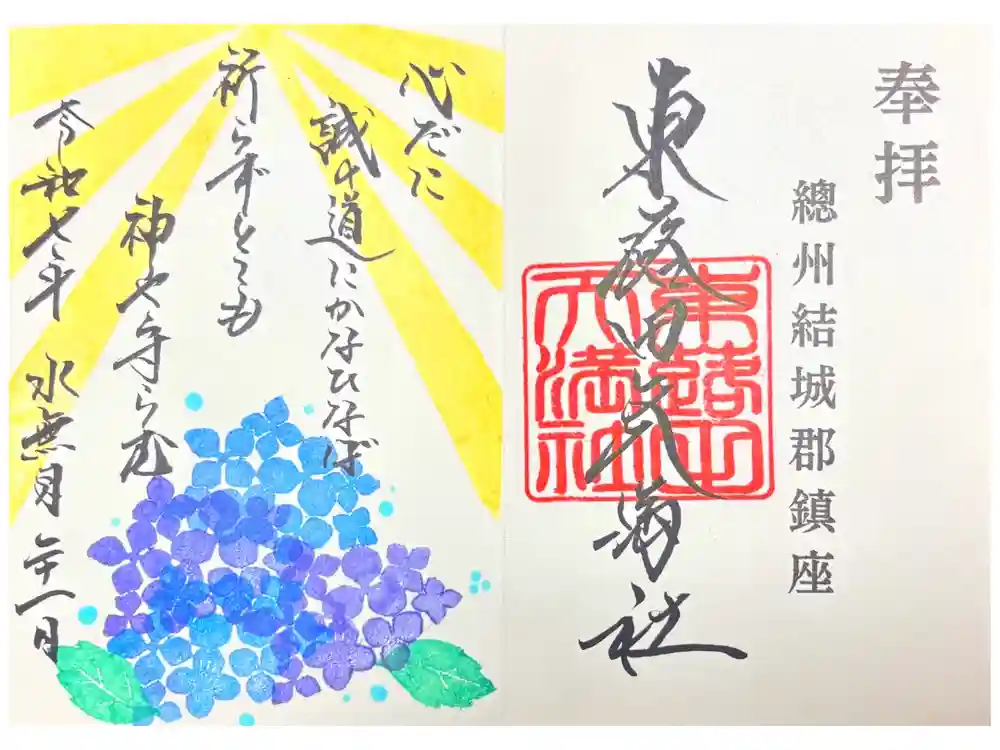 奉拝
總州結城郡鎮座
東蕗田天満社
東蕗田
天満社
心だに
誠の道にかなひなば
祈らずとても
神や守らむ
令和七年 水無月 廿一日